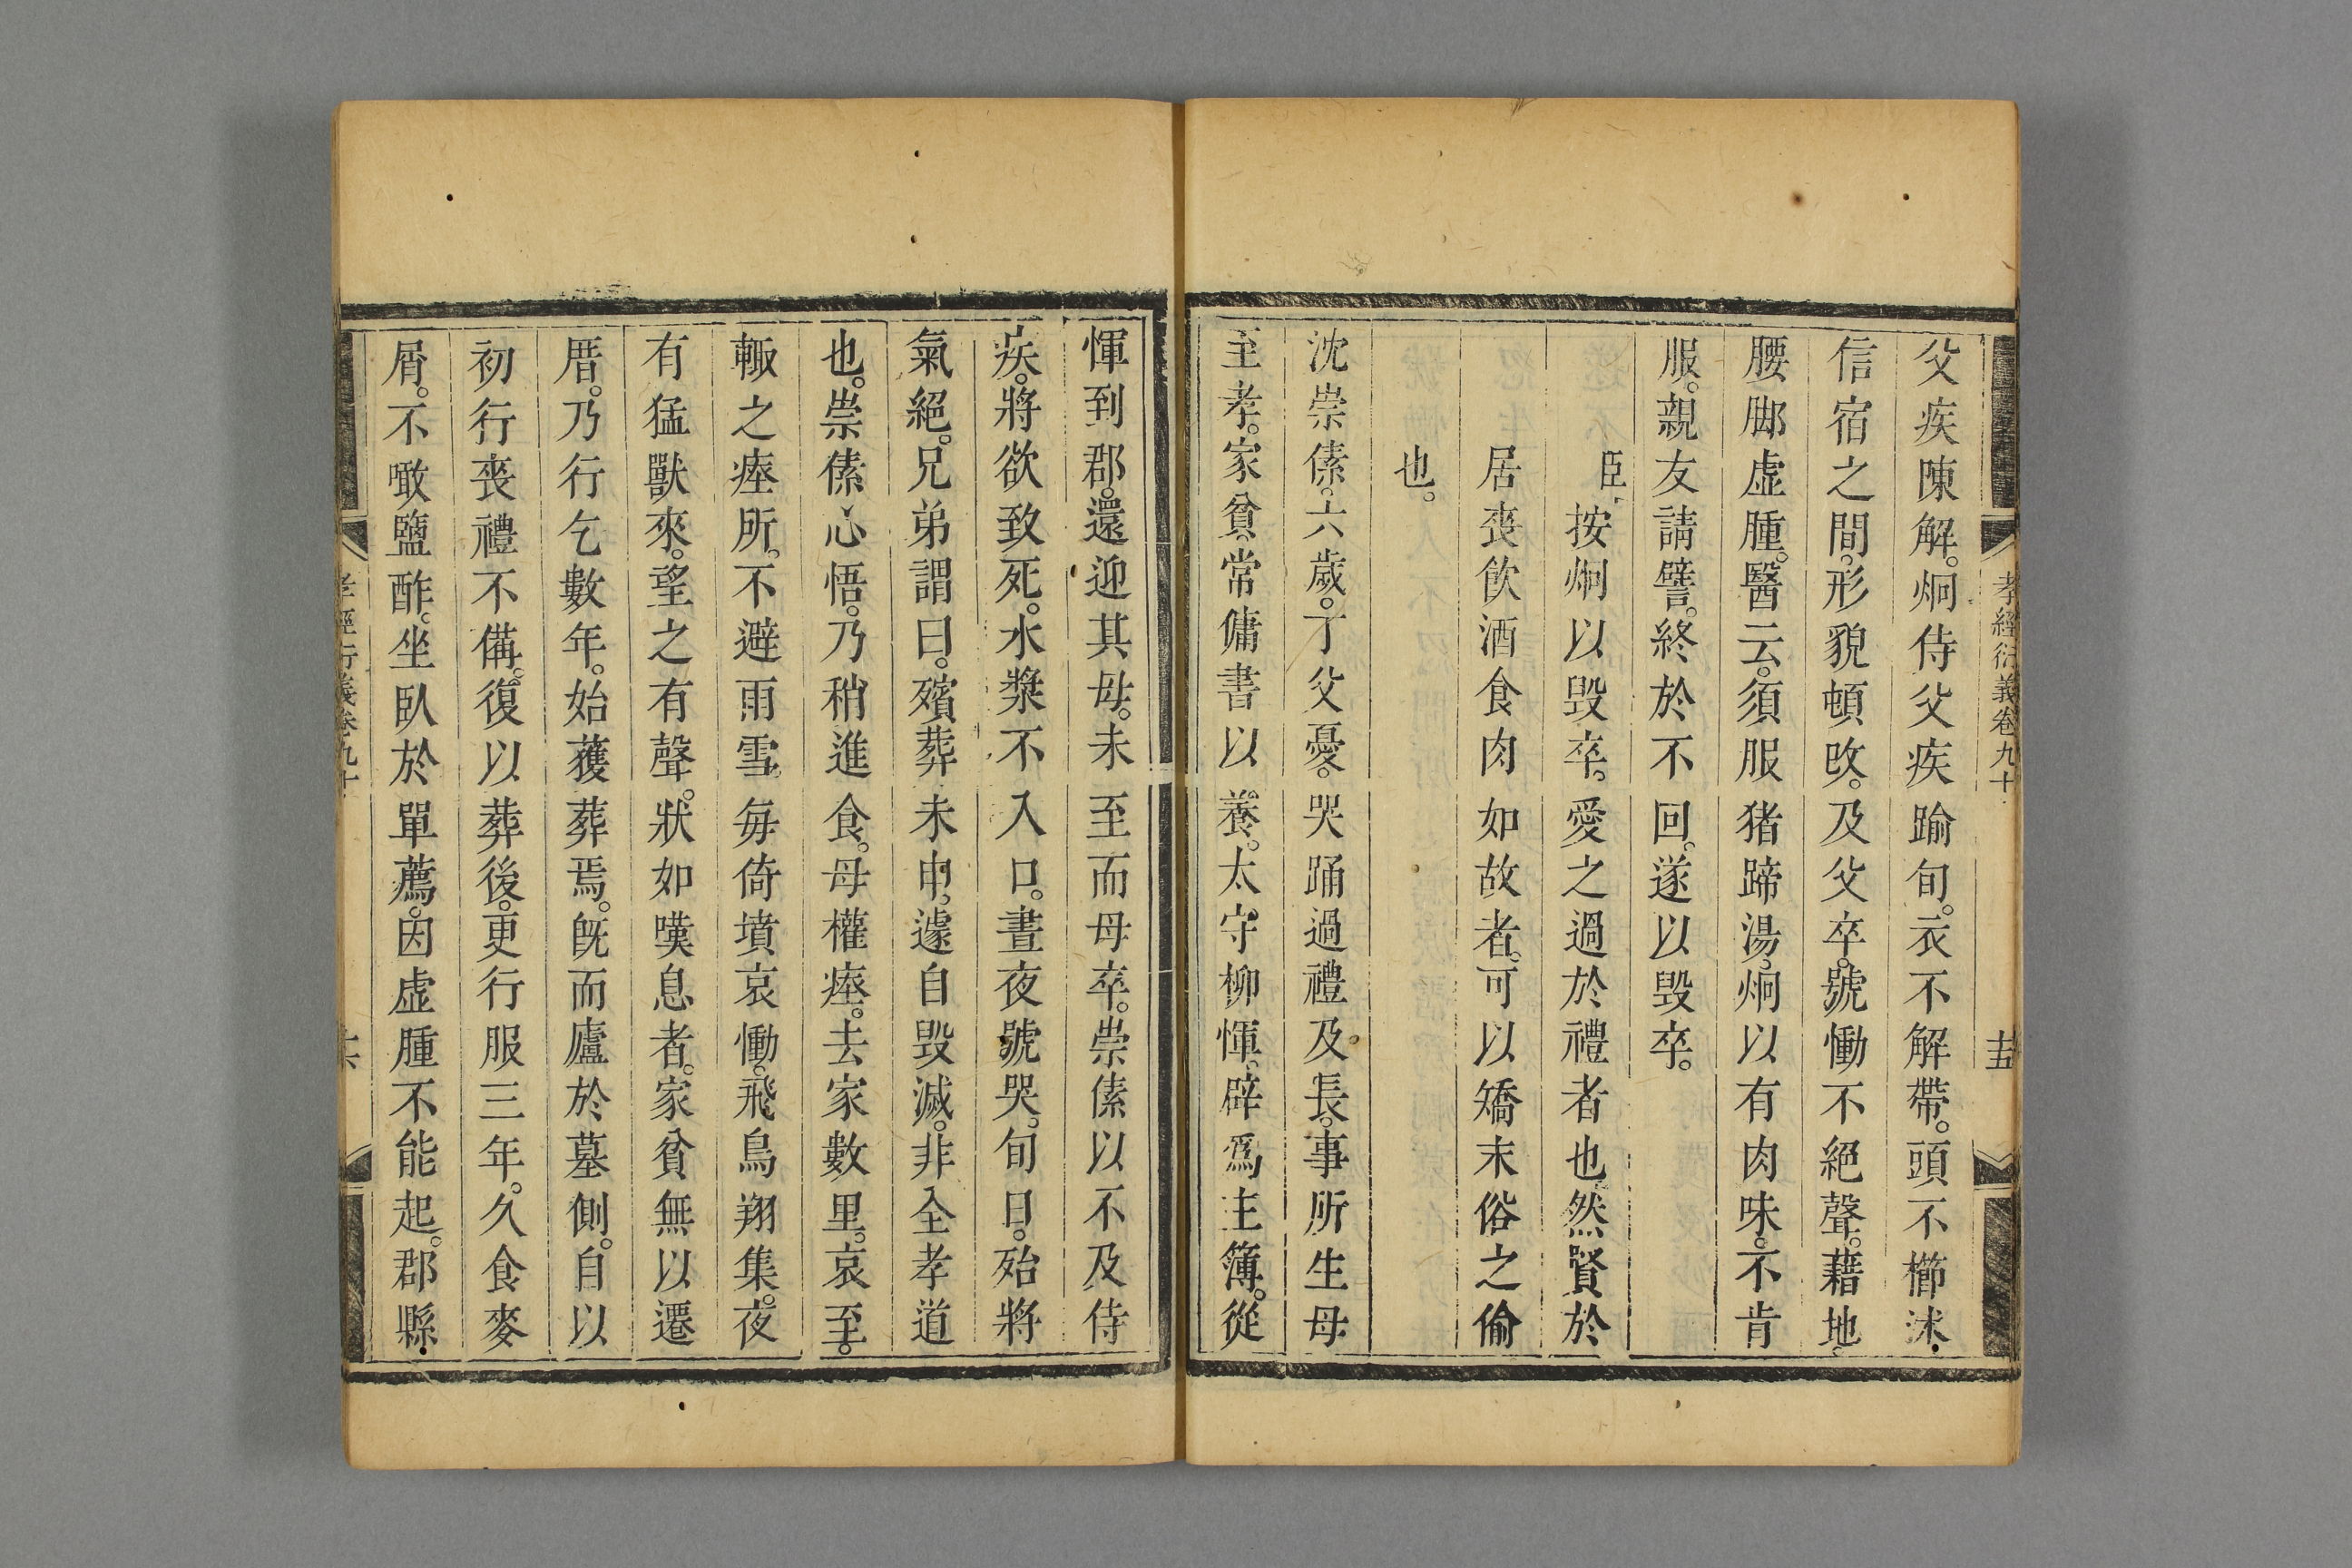 孝經衍義卷九十
十五
父疾陳解。炯侍父疾踰旬。衣不解帶。頭不櫛沐。
信宿之間。形貌頓改。及父卒。號慟不絕聲。藉地。
腰脚虛腫。醫云。須服猪蹄湯。炯以有肉味。不肯
服。親友請譬。終於不回。遂以毀卒。
臣按炯以毀卒。愛之過於禮者也。然賢於
居喪飮酒食肉如故者。可以矯末俗之偷
也。
沈崇傃。六歲。丁父憂。哭踊過禮及長。事所生母
至孝。家貧。常傭書以養。太守柳惲。辟爲主簿。從
惲到郡。還迎其母。未至而母卒。崇傃以不及侍
疾。將欲致死。水漿不入口。晝夜號哭。旬日。殆將
氣絕。兄弟謂曰。殯葬未申。遽自毀滅。非全孝道
也。崇傃心悟。乃稍進食。母權瘞。去家數里。哀至。
輙之瘞所。不避雨雪。每倚墳哀慟。飛鳥翔集。夜
有猛獸來。望之有聲。狀如嘆息者。家貧無以遷
厝。乃行乞數年。始獲葬焉。既而廬於墓側。自以
初行喪禮不備。復以葬後。更行服三年。久食麥
屑。不噉鹽酢。坐臥於單薦。因虛腫不能起。郡縣
孝經衍義卷九十